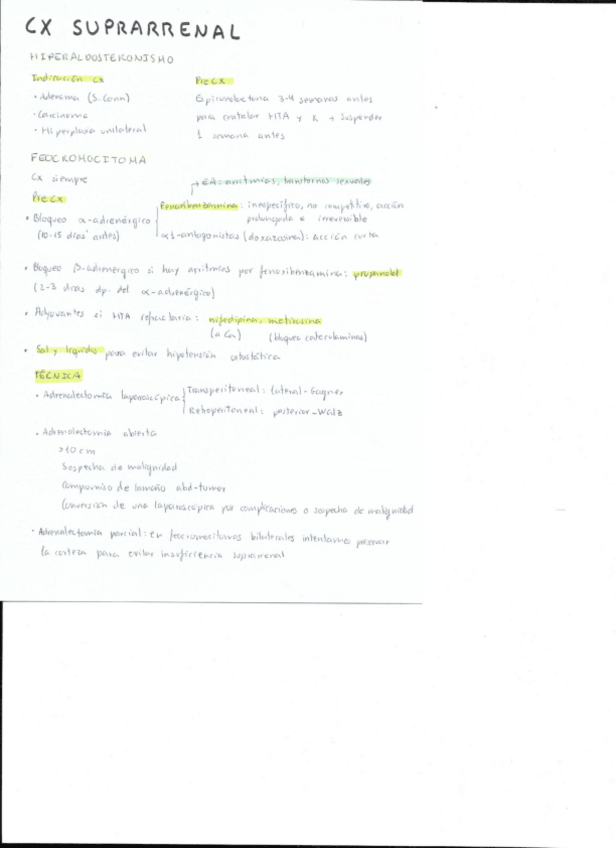 CX SUPRARRENAL
HIPERALDOSTERONISMO
Indicación Cx
• Adenoma (S. Conn)
• Carcinoma
• Hiperplasia unilateral
Pre Cx
Espironolactona 3-4 semanas antes
para controlar HTA y K + suspender
1 semana antes
FEOCROMOCITOMA
Cx siempre
→ EA: arritmias, trastornos sexuales
Pre Cx
• Bloqueo α-adrenérgico
(10-15 días antes)
Fenoxibenzamina: inespecífico, no competitivo, acción
prolongada e irreversible
α1-antagonistas (doxazosina): acción corta
• Bloqueo β-adrenérgico si hay arritmias por fenoxibenzamina: propanolol
(2-3 días dp. del α-adrenérgico)
• Adyuvantes si HTA refractaria: nifedipina, metirosina
(a Ca) (bloquea catecolaminas)
• Sal y líquidos para evitar hipotensión ortostática
TÉCNICA
• Adrenalectomía laparoscópica
Transperitoneal: lateral-Gagner
Retroperitoneal: posterior-Walz
• Adrenalectomía abierta
>10 cm
Sospecha de malignidad
Compromiso de tamaño abd-tumor
Conversión de una laparoscópica por complicaciones o sospecha de malignidad
• Adrenalectomía parcial: en feocromocitomas bilaterales intentamos preservar
la corteza para evitar insuficiencia suprarrenal